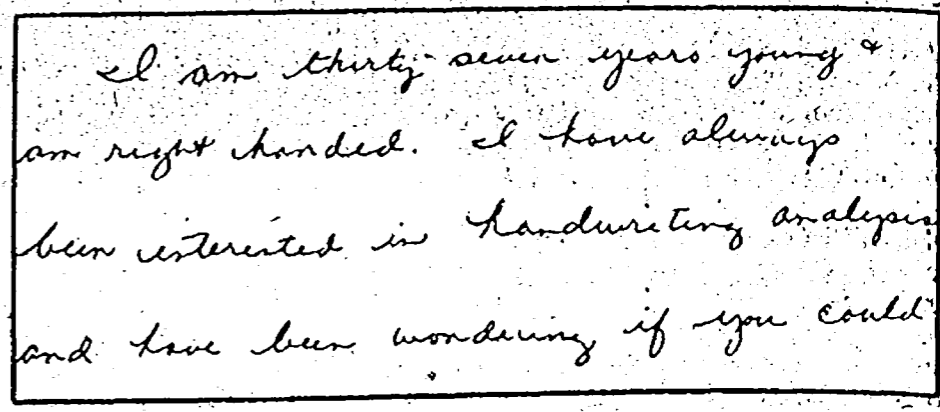 I am thirty-seven years young &
am right handed. I have always
been interested in handwriting analysis
and have been wondering if you could